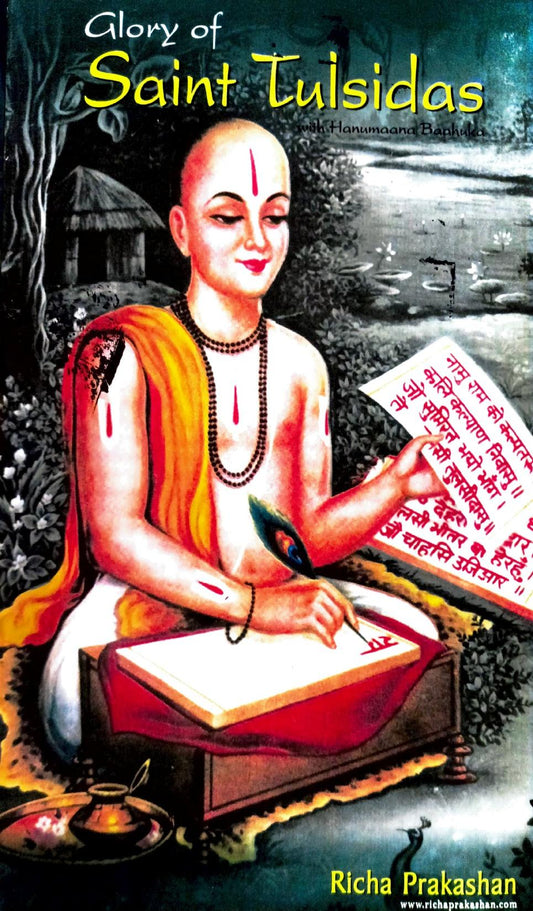 Glory of
Saint Tulsidas
with Hanumaana Baahuka
नामु राम को कलपतरु
कलि कल्याण निवासु ॥
जो सुमिरत भयो भाँग ।
तुलसीदासु ॥
देहरी द्वार ।
लसी भीतर बा हेरहुँ ।
जौ चाहसि उजिआर ॥
Richa Prakashan
www.richaprakashan.com